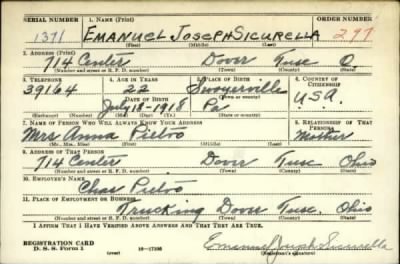 SERIAL NUMBER 1. NAME (Print) ORDER NUMBER
1371 EMANUEL JOSEPH SICURELLA 297
(First) (Middle) (Last)
2. ADDRESS (Print)
714 Center Dover Tusc O.
(Number and street or R. F. D. number) (Town) (County) (State)
3. TELEPHONE 4. AGE IN YEARS 5. PLACE OF BIRTH 6. COUNTRY OF CITIZENSHIP
39164 22 Swoyerville
DATE OF BIRTH U.S.A.
July-18-1918 Pa
(Exchange) (Number) (Mo.) (Day) (Yr.) (State or country)
7. NAME OF PERSON WHO WILL ALWAYS KNOW YOUR ADDRESS 8. RELATIONSHIP OF THAT PERSON
Mrs Anna Mother
(Mr., Mrs., Miss) (First) (Middle) (Last)
9. ADDRESS OF THAT PERSON
714 Center Dover Tusc Ohio
(Number and street or R. F. D. number) (Town) (County) (State)
10. EMPLOYER'S NAME
Chas
11. PLACE OF EMPLOYMENT OR BUSINESS
Trucking Dover Tusc. Ohio
(Number and street or R. F. D. number) (Town) (County) (State)
I AFFIRM THAT I HAVE VERIFIED ABOVE ANSWERS AND THAT THEY ARE TRUE.
REGISTRATION CARD Emanuel Joseph Sicurella
D. S. S. Form 1 (over) 16-17105 (Registrant's signature)